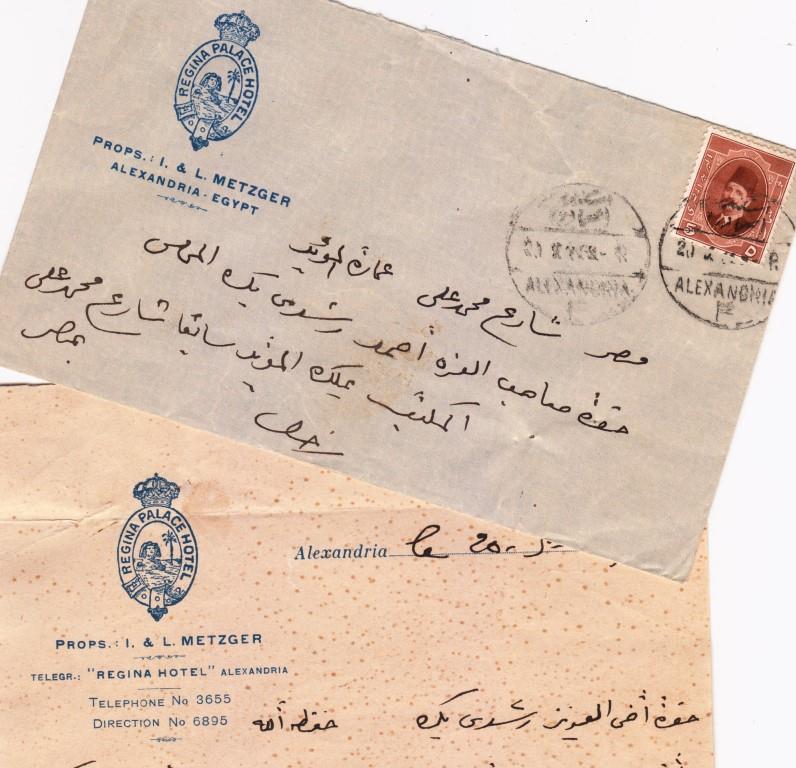 REGINA PALACE HOTEL
PROPS.: I. & L. METZGER
ALEXANDRIA - EGYPT
ALEXANDRIA
ALEXANDRIA
عمارة المؤيد
مصر شارع محمد على
حضرة صاحب العزه أحمد رشدى بك
بملك المؤيد سابقا شارع محمد على
بمصر
REGINA PALACE HOTEL
PROPS.: I. & L. METZGER
TELEGR.: "REGINA HOTEL" ALEXANDRIA
TELEPHONE No 3655
DIRECTION No 6895
Alexandria le 20-
حضرة أخى العزيز رشدى بك حفظه الله